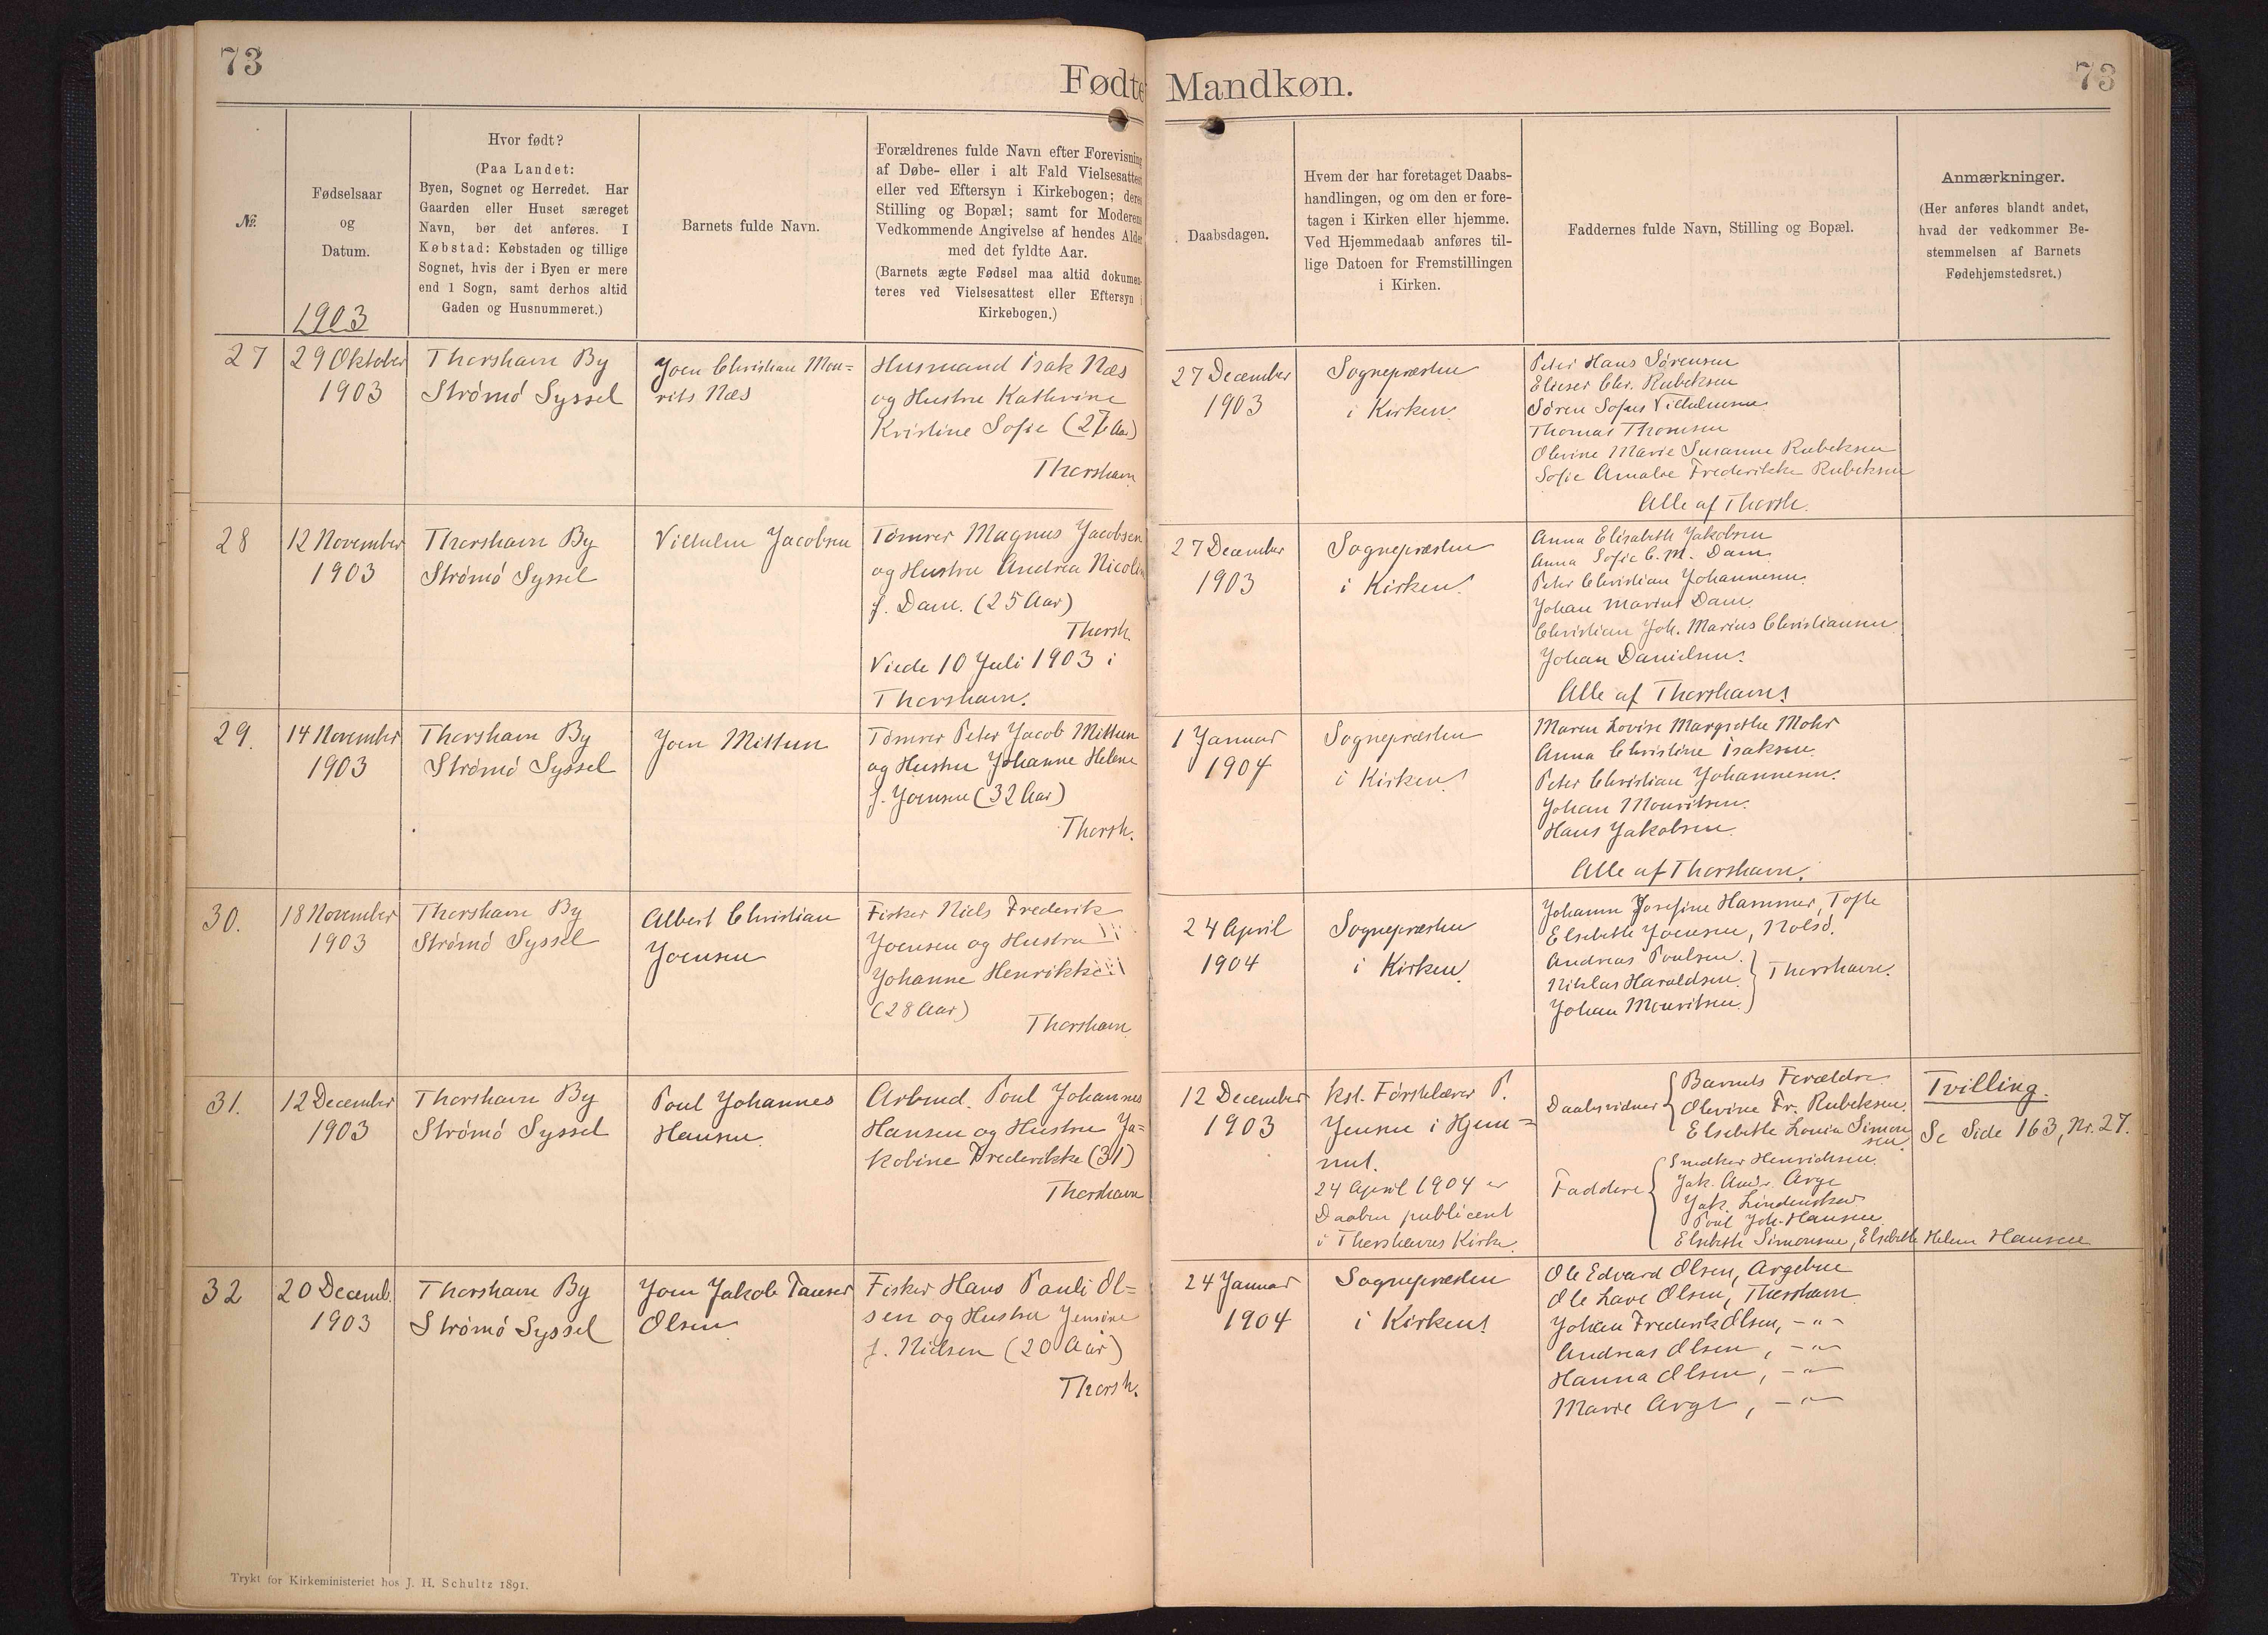 73
73
Fødte Mandkøn.
№.
Fødselsaar
og
Datum.
1903
Hvor født?
(Paa Landet:
Byen, Sognet og Herredet. Har
Gaarden eller Huset særeget
Navn, bør det anføres. I
Købstad: Købstaden og tillige
Sognet, hvis der i Byen er mere
end 1 Sogn, samt derhos altid
Gaden og Husnummeret.)
Barnets fulde Navn.
Forældrenes fulde Navn efter Forevisning
af Døbe- eller i alt Fald Vielsesattest
eller ved Eftersyn i Kirkebogen; deres
Stilling og Bopæl; samt for Moderens
Vedkommende Angivelse af hendes Alder
med det fyldte Aar.
(Barnets ægte Fødsel maa altid dokumen-
teres ved Vielsesattest eller Eftersyn i
Kirkebogen.)
Daabsdagen.
Hvem der har foretaget Daabs-
handlingen, og om den er fore-
tagen i Kirken eller hjemme.
Ved Hjemmedaab anføres til-
lige Datoen for Fremstillingen
i Kirken.
Faddernes fulde Navn, Stilling og Bopæl.
Anmærkninger.
(Her anføres blandt andet,
hvad der vedkommer Be-
stemmelsen af Barnets
Fødehjemstedsret.)
27
29 Oktober
1903
Thorshavn By
Strömö Syssel
Joen Christian Mou=
rits Næs
Husmand Isak Næs
og Hustru Kathrine
Kristine Sofie (27 Aar)
Thorshavn
27 December
1903
Sognepræsten
i Kirken.
Peter Hans Sørensen
Elieser Chr. Rubeksen
Sören Sofus Vilhelmsen
Thomas Thomsen
Olevine Marie Susanne Rubeksen
Sofie Amalie Frederikke Rubeksen
Alle af Thorsh.
28
12 November
1903
Thorshavn By
Strömö Syssel
Vilhelm Jacobsen
Tömrer Magnus Jacobsen
og Hustru Andrea Nicoline
f. Dam. (25 Aar)
Thorsh.
Viede 10 Juli 1903 i
Thorshavn.
27 December
1903
Sognepræsten
i Kirken.
Anna Elisabeth Jakobsen
Anna Sofie C. M. Dam
Peter Christian Johannesen.
Johan Marius Dam.
Christian Joh. Marius Christiansen
Johan Danielsen.
Alle af Thorshavn.
29.
14 November
1903
Thorshavn By
Strömö Syssel
Joen Mittun
Tömrer Peter Jacob Mittun
og Hustru Johanne Helene
f. Joensen (32 Aar)
Thorsh.
1 Januar
1904
Sognepræsten
i Kirken
Maren Lovise Margrethe Mohr
Anna Christine Isaksen.
Peter Christian Johannesen.
Johan Mouritsen.
Hans Jakobsen.
Alle af Thorshavn.
30.
18 November
1903
Thorshavn By
Strömö Syssel
Albert Christian
Joensen
Fisker Niels Frederik
Joensen og Hustru
Johanne Henrikke
(28 Aar)
Thorshavn
24 April
1904
Sognepræsten
i Kirken
Johanne Josefine Hammer, Tofte
Elsebeth Joensen, Nolsö.
Andreas Poulsen.
Niklas Haraldsen.
Johan Mouritsen.
Thorshavn.
31.
12 December
1903
Thorshavn By
Strömö Syssel
Poul Johannes
Hansen
Arbmd. Poul Johannes
Hansen og Hustru Ja=
kobine Frederikke (31)
Thorshavn
12 December
1903
kst. Førstelærer P.
Jensen i Hjem=
met.
24 April 1904 er
Daaben publiceret
i Thorshavns Kirke.
Daabsvidner
Barnets Forældre.
Olevine Fr. Rubeksen.
Elsebeth Louisa Simon
sen
Faddere
Snedker Henriksen.
Jak. Andr. Arge
Jak. Lindenskov
Poul Joh. Hansen
Elsebeth Simonsen, Elsebeth Helene Hansen
Tvilling.
Se Side 163, Nr. 27.
32
20 Decemb.
1903
Thorshavn By
Strömö Syssel
Joen Jakob Tauser
Olsen
Fisker Hans Pauli Ol=
sen og Hustru Jensine
f. Nielsen (20 Aar)
Thorsh.
24 Januar
1904
Sognepræsten
i Kirken
Ole Edvard Olsen, Argebæ
Ole Lave Olsen, Thorshavn
Johan Frederik Olsen, -"-
Andreas Olsen, -"-
Hanna Olsen, -"-
Marie Arge, -"-
Trykt for Kirkeministeriet hos J. H. Schultz 1891.